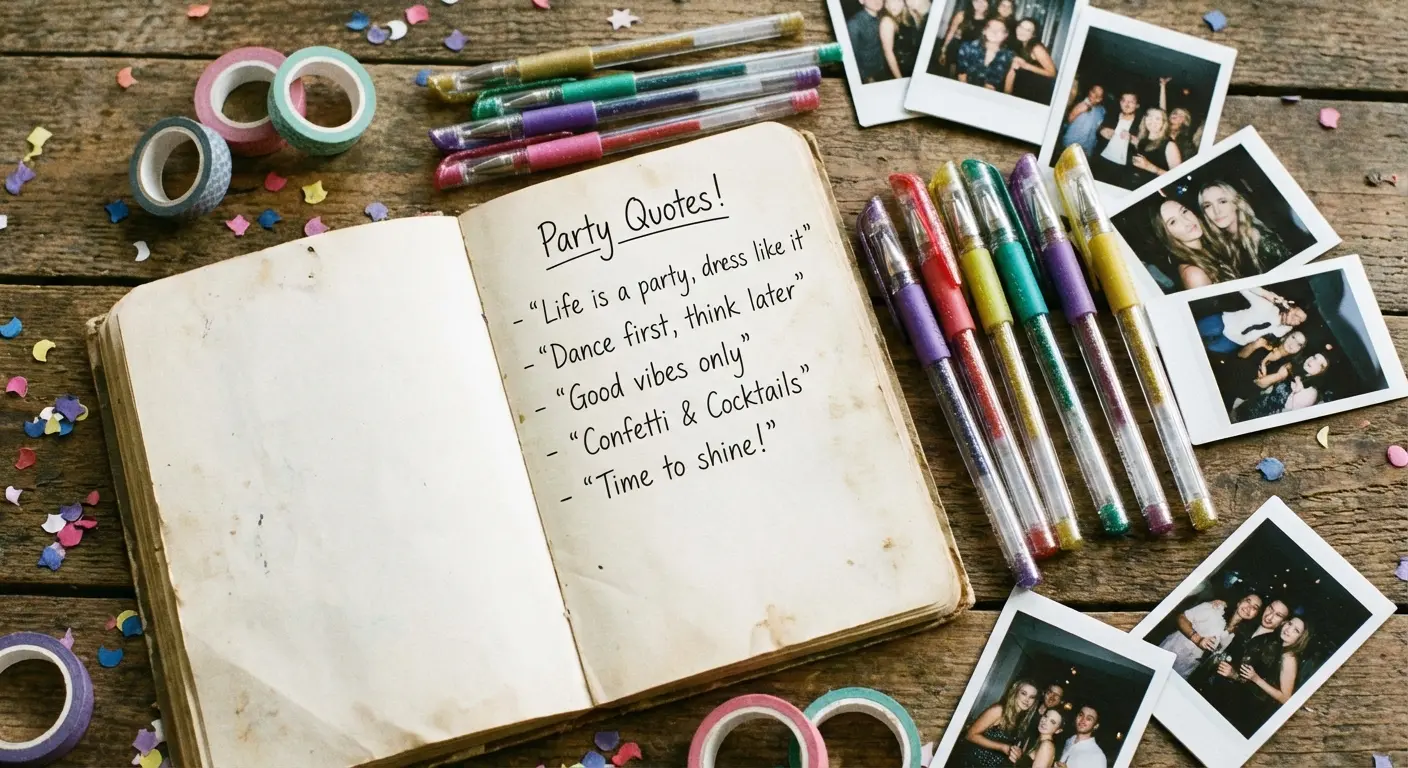 Party Quotes!
- “Life is a party, dress like it”
- “Dance first, think later”
- “Good vibes only”
- “Confetti & Cocktails”
- “Time to shine!”